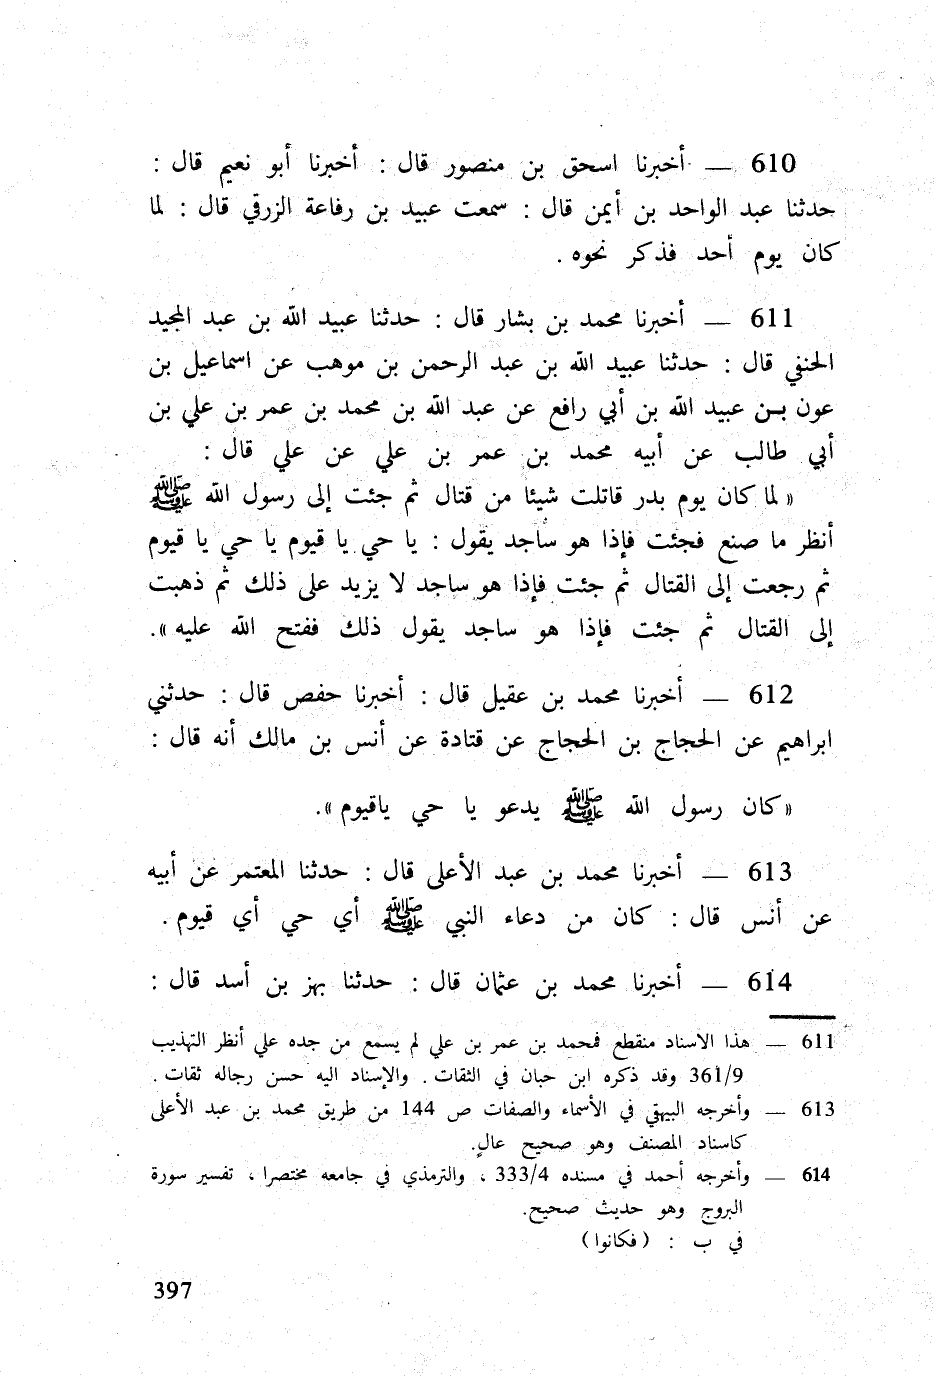 610 — أخبرنا اسحق بن منصور قال : أخبرنا أبو نعيم قال :
حدثنا عبد الواحد بن أيمن قال : سمعت عبيد بن رفاعة الزرقي قال : لما
كان يوم أحد فذكر نحوه .
611 — أخبرنا محمد بن بشار قال : حدثنا عبيد الله بن عبد المجيد
الحنفي قال : حدثنا عبيد الله بن عبد الرحمن بن موهب عن اسماعيل بن
عون بن عبيد الله بن أبي رافع عن عبد الله بن محمد بن عمر بن علي بن
أبي طالب عن أبيه محمد بن عمر بن علي عن علي قال :
« لما كان يوم بدر قاتلت شيئا من قتال ثم جئت إلى رسول الله ﷺ
أنظر ما صنع فجئت فإذا هو ساجد يقول : يا حي يا قيوم يا حي يا قيوم
ثم رجعت إلى القتال ثم جئت فإذا هو ساجد لا يزيد على ذلك ثم ذهبت
إلى القتال ثم جئت فإذا هو ساجد يقول ذلك ففتح الله عليه ».
612 — أخبرنا محمد بن عقيل قال : أخبرنا حفص قال : حدثني
ابراهيم عن الحجاج بن الحجاج عن قتادة عن أنس بن مالك أنه قال :
«كان رسول الله ﷺ يدعو يا حي ياقيوم ».
613 — أخبرنا محمد بن عبد الأعلى قال : حدثنا المعتمر عن أبيه
عن أنس قال : كان من دعاء النبي ﷺ أي حي أي قيوم .
614 — أخبرنا محمد بن عثمان قال : حدثنا بهز بن أسد قال :
611 — هذا الاسناد منقطع فمحمد بن عمر بن علي لم يسمع من جده علي أنظر التهذيب
361/9 وقد ذكره ابن حبان في الثقات . والإسناد اليه حسن رجاله ثقات .
613 — وأخرجه البيهقي في الأسماء والصفات ص 144 من طريق محمد بن عبد الأعلى
كاسناد المصنف وهو صحيح عالٍ.
614 — وأخرجه أحمد في مسنده 333/4 ، والترمذي في جامعه مختصرا ، تفسير سورة
البروج وهو حديث صحيح.
في ب : (فكانوا)
397